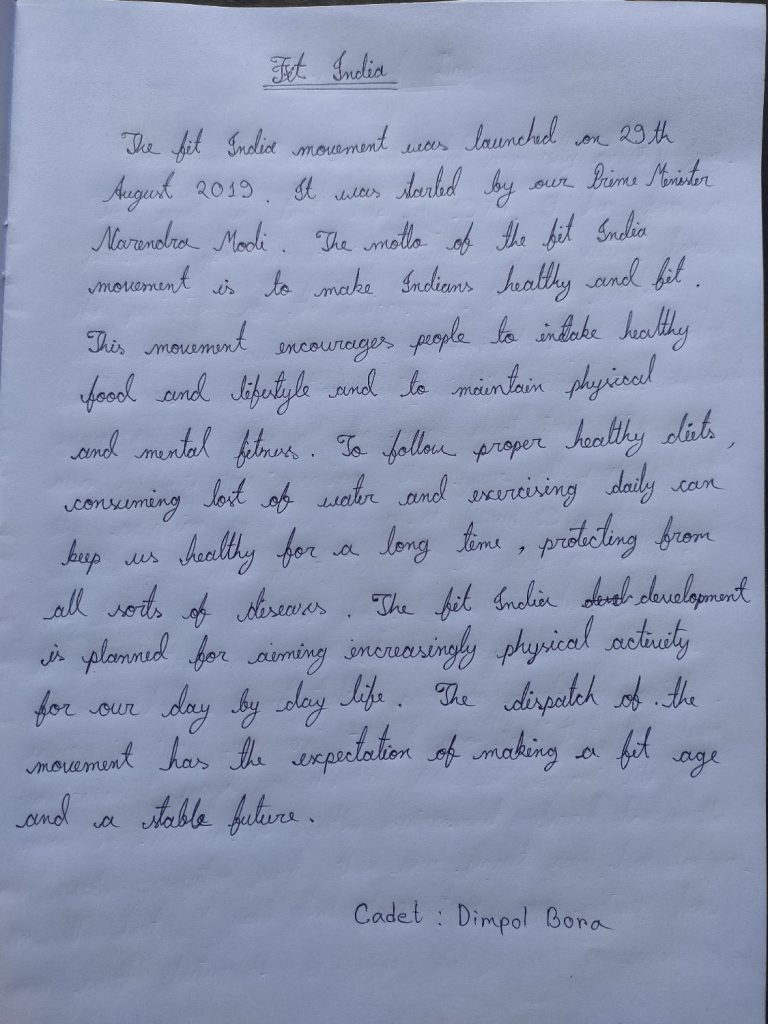 Fit India
The fit India movement was launched on 29th
August 2019. It was started by our Prime Minister
Narendra Modi. The motto of the fit India
movement is to make Indians healthy and fit.
This movement encourages people to intake healthy
food and lifestyle and to maintain physical
and mental fitness. To follow proper healthy diets,
consuming lost of water and exercising daily can
keep us healthy for a long time, protecting from
all sorts of diseases. The fit India development
is planned for aiming increasingly physical activity
for our day by day life. The dispatch of the
movement has the expectation of making a fit age
and a stable future.
Cadet : Dimpol Bora